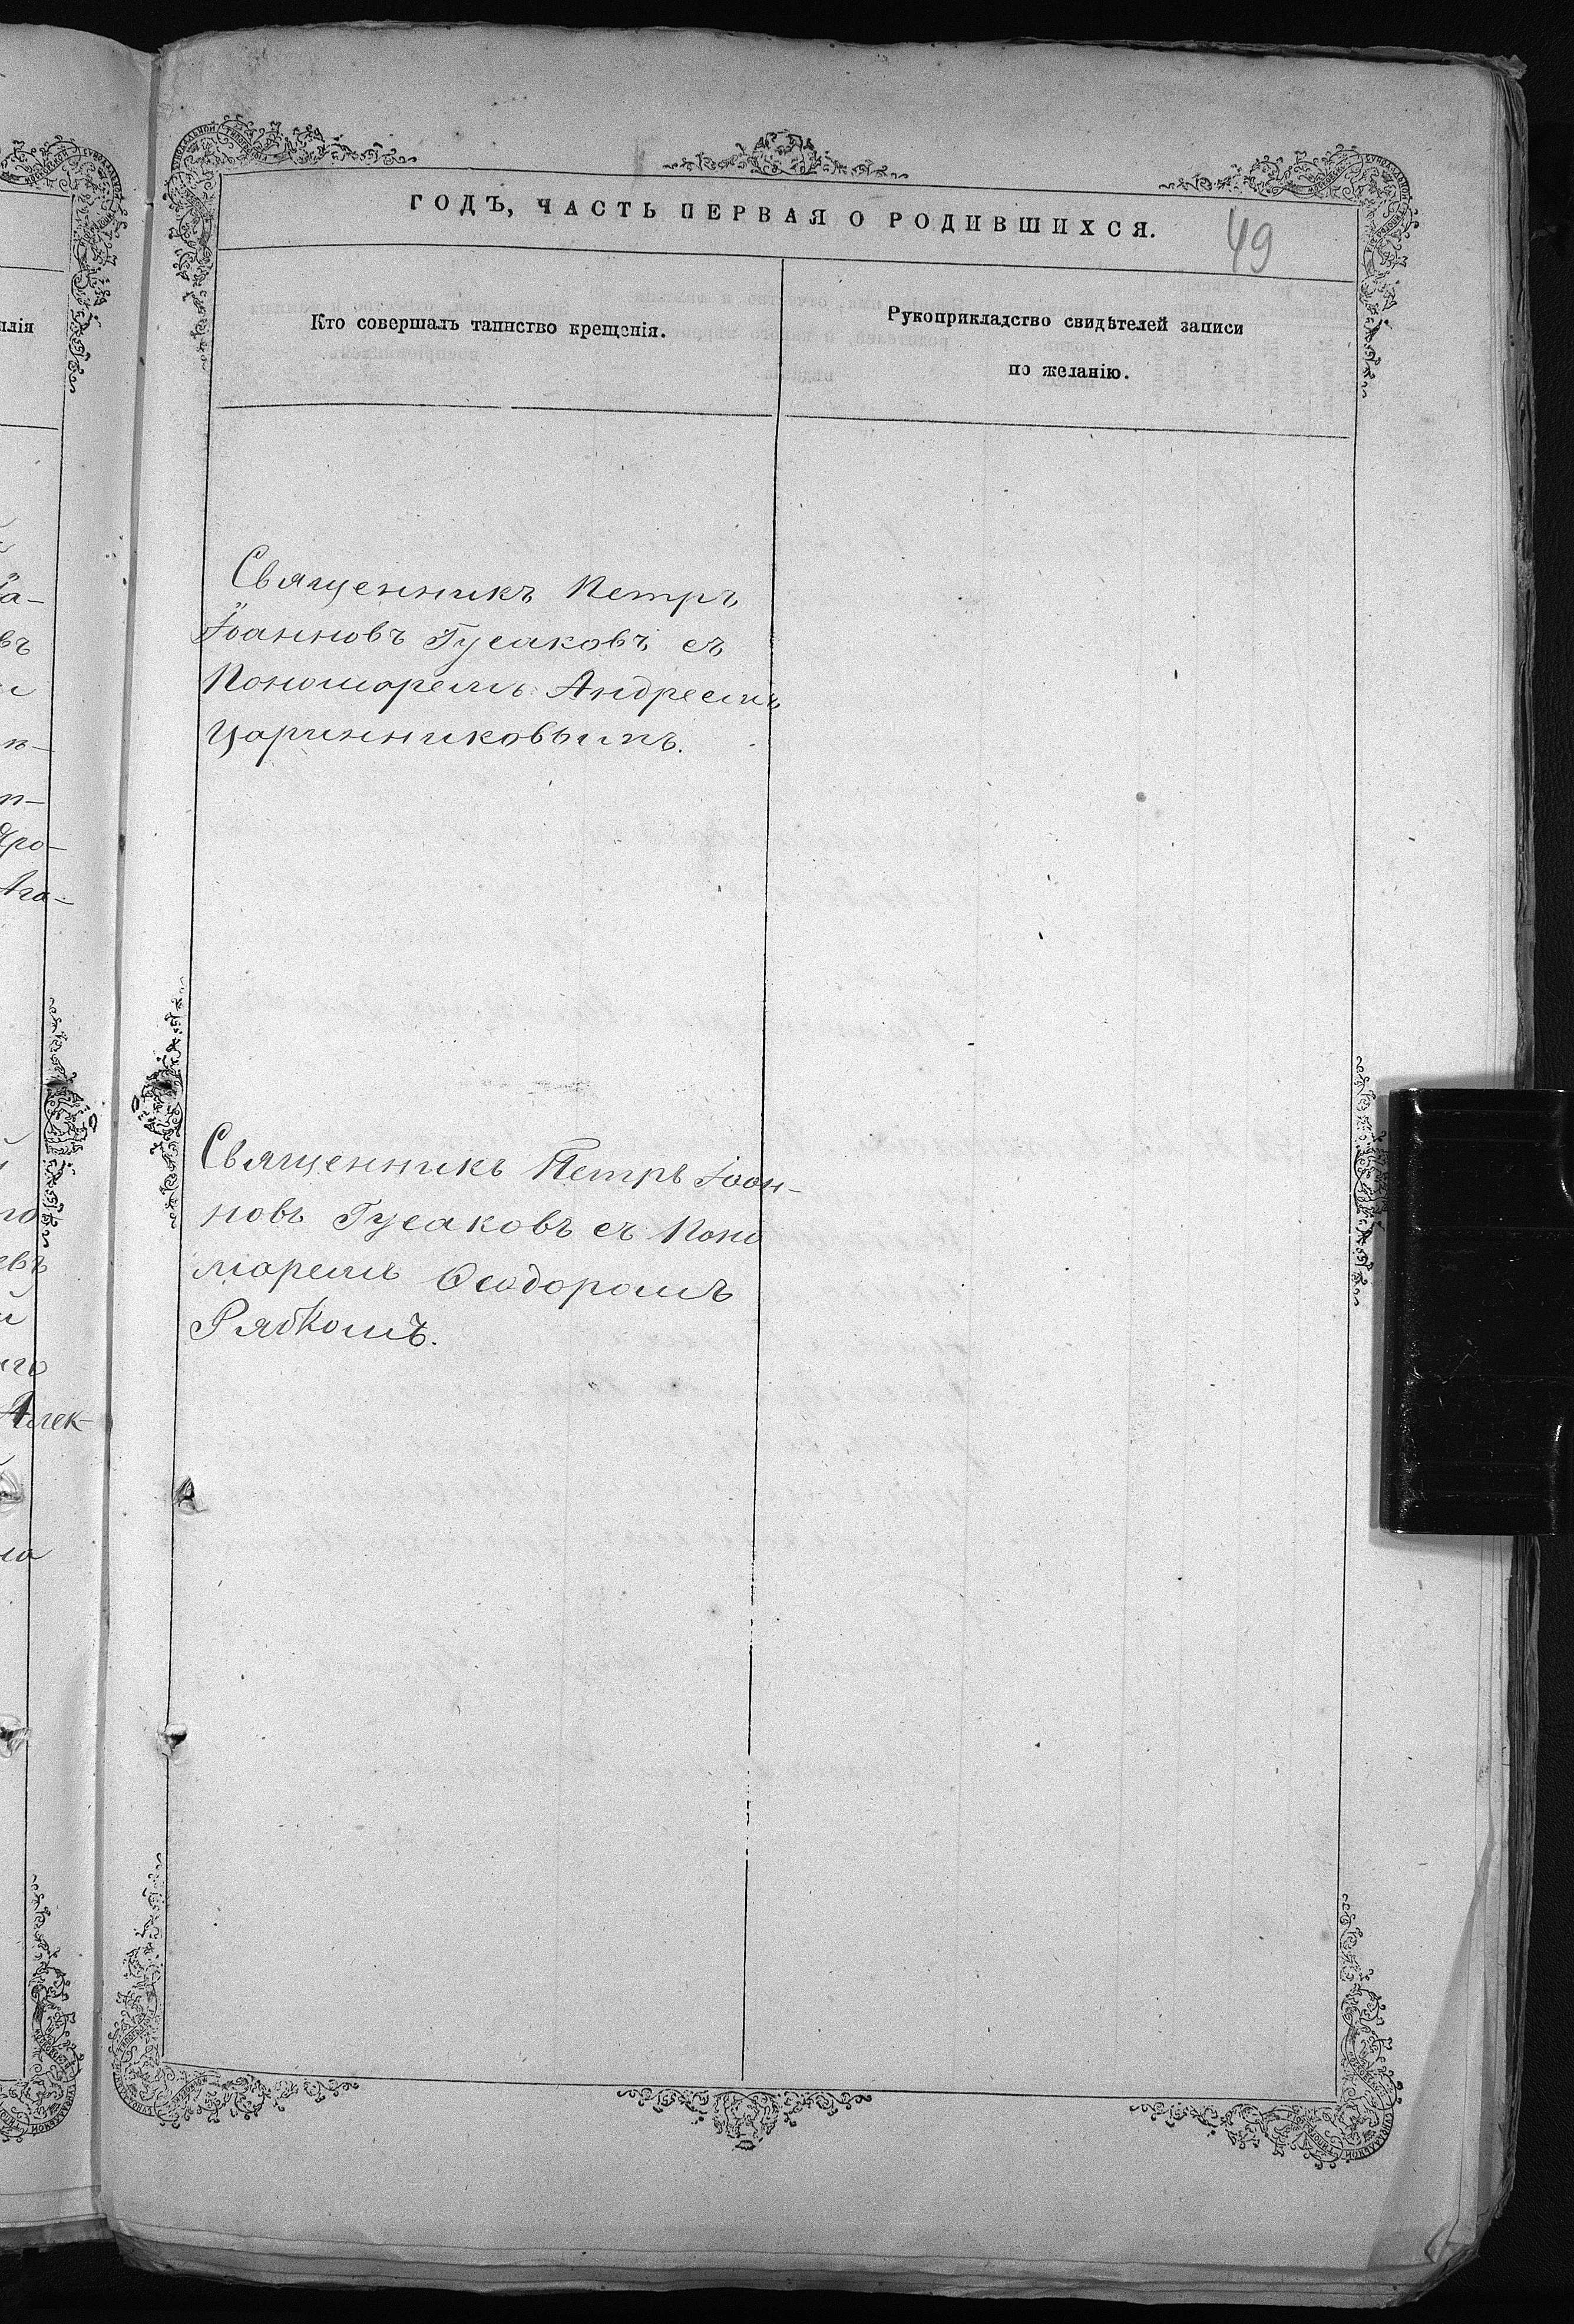 ГОДЪ, ЧАСТЬ ПЕРВАЯ О РОДИВШИХСЯ.
49
Кто совершалъ таинство крещенія.
Рукоприкладство свидѣтелей записи
по желанію.
Священникъ Петръ
Іоанновъ Гусаковъ съ
Пономаремъ Андреемъ
Царинниковымъ.
Священникъ Петръ Іоан-
новъ Гусаковъ съ Поно
маремъ Ѳеодоромъ
Рябкомъ.
плія
а-
въ
п-
Аро-
Ага-
го
евъ
Алек-